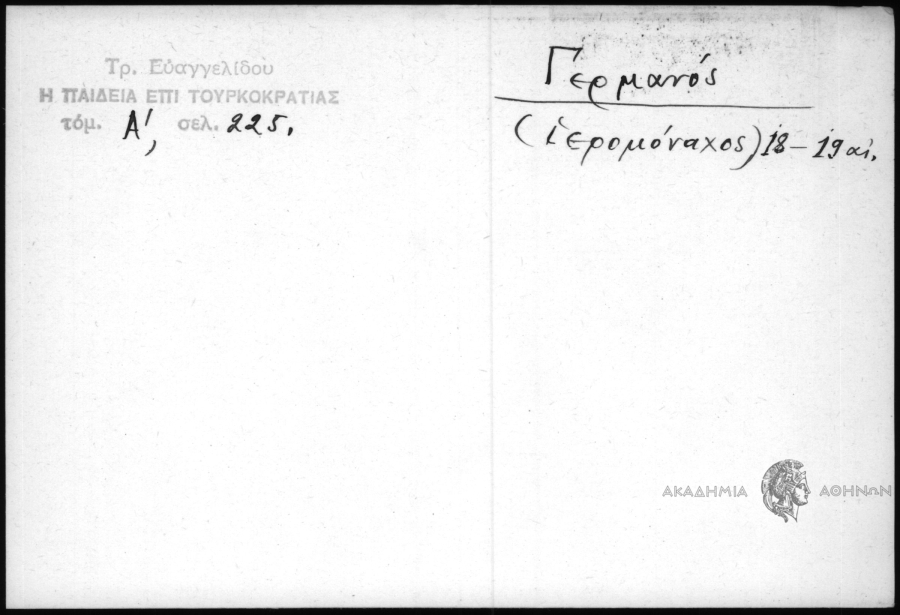 Τρ. Εὐαγγελίδου
Η ΠΑΙΔΕΙΑ ΕΠΙ ΤΟΥΡΚΟΚΡΑΤΙΑΣ
τόμ. Α', σελ. 225.
Γερμανός
(ἱερομόναχος) 18 – 19 αἰ.
ΑΚΑΔΗΜΙΑ ΑΘΗΝΩΝ